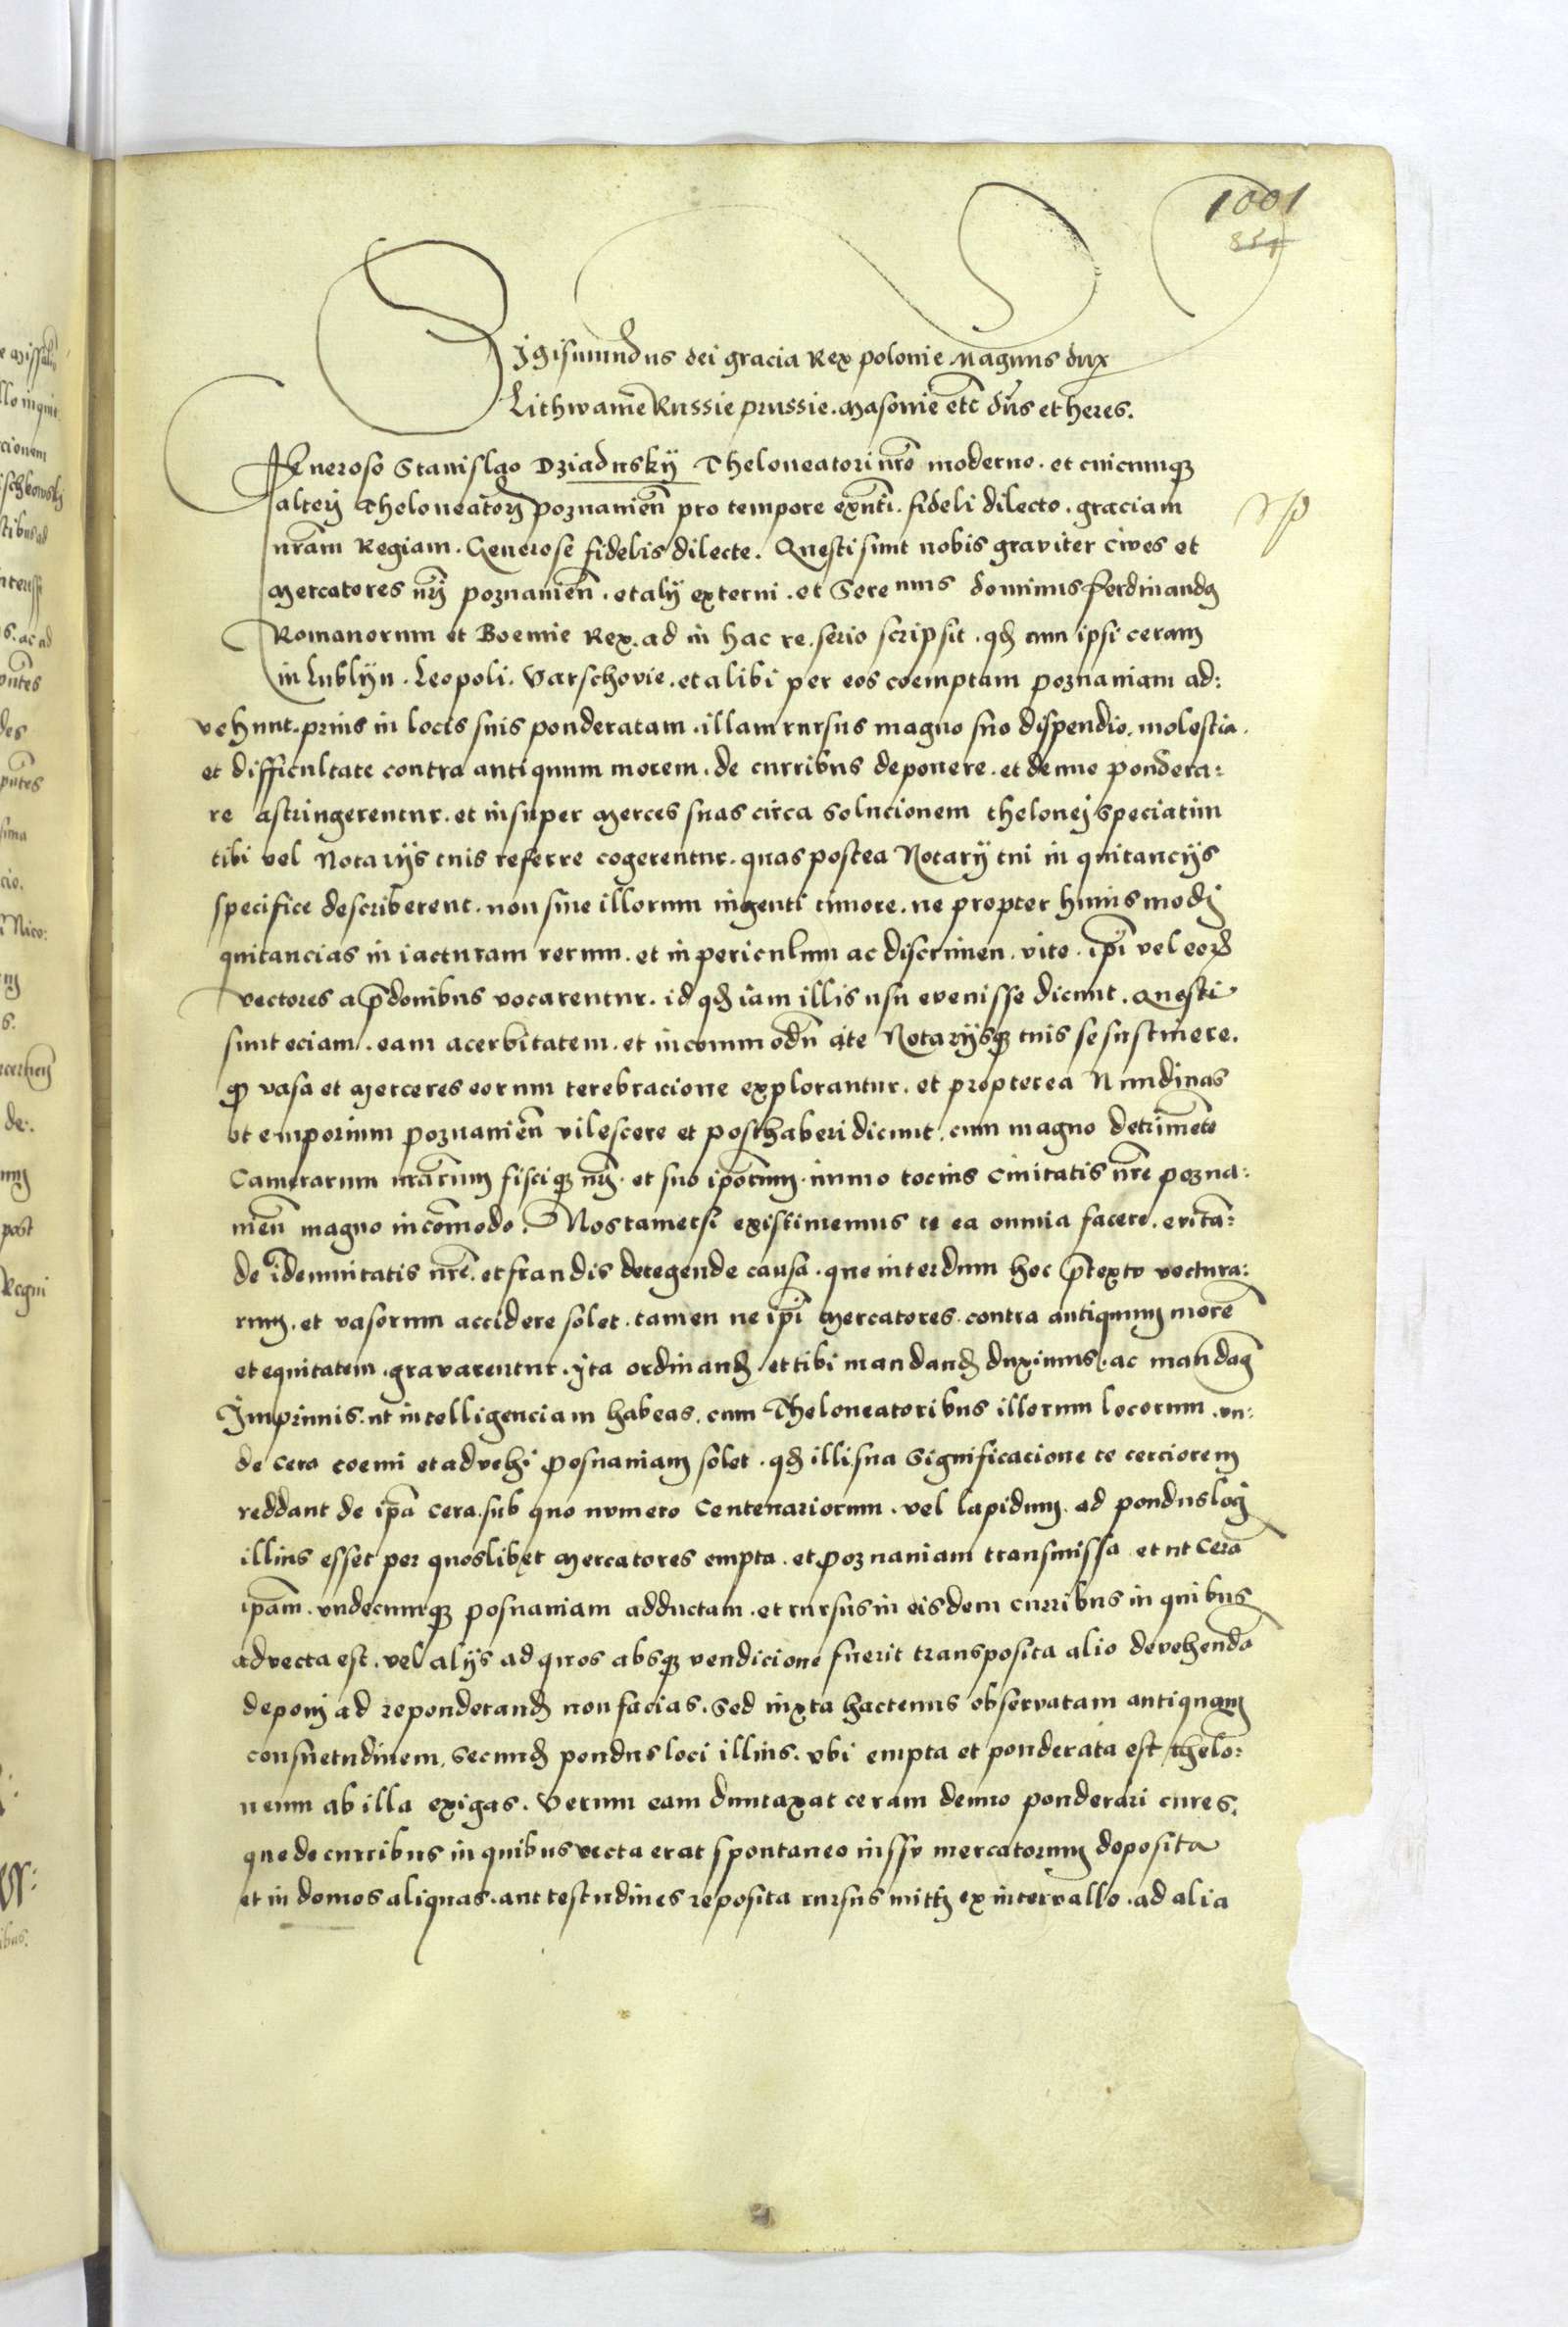 1001
Sigismundus dei gracia Rex polonie Magnus dux
Lithwaniē Russie prussie. Masovie etc̄ dn̄s et heres.
Generoso Stanislao Dziadusky Theloneatori nr̄o moderno. et cuicumqꝫ
alterj Theloneatorj poznanien̄ pro tempore exn̄ti. fideli dilecto. graciam
nr̄am Regiam. Generose fidelis dilecte. Questi sunt nobis graviter cives et
Mercatores nr̄j poznanien̄. et alij externi. et Sere nus dominus ferdinandꝯ
Romanorum et Boemie Rex. ad in hac re. serio scripsit. qđ cum ipsi ceram
in Lublyn. Leopoli. Varschovie. et alibi per eos coemptam poznaniam ad:
vehunt. prius in locis suis ponderatam. illam rursus magno suo dispendio. molestia.
et difficultate contra antiquum morem. de curribus deponere. et denuo pondera:
re astringerentur. et insuper Merces suas circa solucionem thelonej speciatim
tibi vel Notarijs tuis referre cogerentur. quas postea Notarij tui in quitancijs
specifice describerent. non sine illorum ingenti timore. ne propter huiusmodj
quitancias in iacturam rerum. et in periculum ac discrimen. vite. ip̄i vel eoꝝ
vectores a p̄donibus vocarentur. id qđ iam illis usu evenisse dicunt. Questi
sunt eciam. eam acerbitatem. et incommodū a te Notarijsqꝫ tuis se sustinere.
qꝫ vasa et Merceres eorum terebracione explorantur. et propterea Nundinas
et emporium poznanien̄ vilescere et posthaberi dicunt. cum magno detrimēto
Camerarum nr̄arum fisciqꝫ nr̄j. et suo ip̄orum. immo tocius civitatis nr̄e pozna:
nien̄ magno incōmodo. Nos tametsi existimemus te ea omnia facere. evitā:
de īdemnitatis nr̄e. et fraudis detegende causa. que interdum hoc p̄textu vectura:
rum. et vasorum accidere solet. tamen ne ip̄i Mercatores. contra antiquum morē
et equitatem. gravarentur. yta ordinanđ. et tibi mandanđ duximus. ac mandamꝯ
Imprimis. ut intelligenciam habeas. cum Theloneatoribus illorum locorum. un:
de cera coemi et advehi posnaniam solet. qđ illi sua significacione te cerciorem
reddant de ip̄a cera. sub quo numero Centenariorum. vel lapidum. ad pondus locj
illius esset per quoslibet Mercatores empta. et poznaniam transmissa et ut cerā
ip̄am. undecumqꝫ posnaniam adductam. et rursus in eisdem curribus in quibus
advecta est. vel alijs ad quos absqꝫ vendicione fuerit transposita alio devehendā
deponj ad reponderanđ non facias. Sed iuxta hactenus observatam antiquam
consuetudinem. secunđ pondus loci illius. ubi empta et ponderata est thelo:
neum ab illa exigas. Verum eam duntaxat ceram denuo ponderari cures.
que de curribus in quibus vecta erat spontaneo iussu mercatorum deposita
et in domos aliquas. aut testudines reposita rursus mittj ex intervallo. ad alia